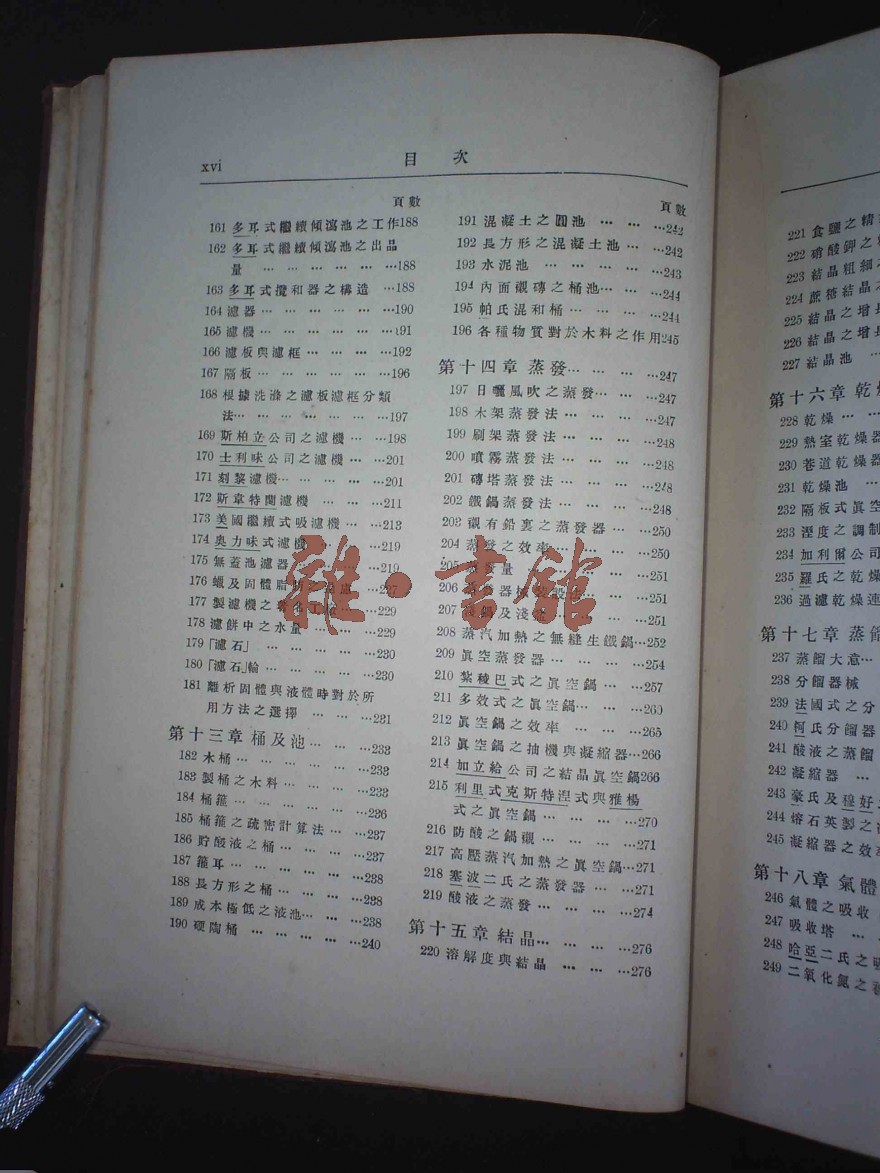 xvi 目次
頁數
161 多耳式繼續傾瀉池之工作188
162 多耳式繼續傾瀉池之出品
量 … … … … … …188
163 多耳式攪和器之構造 …188
164 濾器 … … … … …190
165 濾機… … … … … …191
166 濾板與濾框 … … … …192
167 隔板… … … … … …196
168 根據洗滌之濾板濾框分類
法… … … … … …197
169 斯柏立公司之濾機… …198
170 士利味公司之濾機… …201
171 刻黎濾機… … … … …201
172 斯韋特閏濾機 … … …211
173 美國繼續式吸濾機… …213
174 奥力味式濾機 …219
175 無蓋池濾器 …219
176 蠟及固體脂肪之 …227
177 製濾機之著名工 …229
178 濾餅中之水量 … … …229
179「濾石」 … … … … …230
180「濾石」輪… … … … …230
181 離析固體與液體時對於所
用方法之選擇 … … …231
第十三章 桶及池… … …233
182 木桶… … … … … …233
183 製桶之木料… … … …233
184 桶箍… … … … … …236
185 桶箍之疏密計算法… …237
186 貯酸液之桶… … … …237
187 箍耳… … … … … …238
188 長方形之桶… … … …238
189 成本極低之液池… … …238
190 硬陶桶 … … … … …240
頁數
191 混凝土之圓池 … … …242
192 長方形之混凝土池… …242
193 水泥池 … … … … …243
194 內面襯磚之桶池… … …244
195 帕氏混和桶… … … …244
196 各種物質對於木料之作用245
第十四章 蒸發… … …247
197 日曬風吹之蒸發… … …247
198 木架蒸發法… … … …247
199 刷架蒸發法… … … …248
200 噴霧蒸發法… … … …248
201 磚塔蒸發法… … … …248
202 鐵鍋蒸發法… … … …248
203 襯有鉛裏之蒸發器… …250
204 蒸發之效率… … … …250
205 蒸發量 … … …251
206 器械 設法 …251
207 鍋及淺 … …251
208 蒸汽加熱之無縫生鐵鍋…252
209 眞空蒸發器… … … …254
210 紮稜巴式之眞空鍋 … …257
211 多效式之眞空鍋… … …260
212 眞空鍋之效率 … … …265
213 眞空鍋之抽機與凝縮器…266
214 加立給公司之結晶眞空鍋266
215 利里式克斯特涅式與雅楊
式之眞空鍋… … … …270
216 防酸之鍋襯… … … …271
217 高壓蒸汽加熱之眞空鍋…271
218 塞波二氏之蒸發器… …271
219 酸液之蒸發… … … …274
第十五章 結晶… … …276
220 溶解度與結晶 … … …276
221 食鹽之精
222 硝酸鉀之
223 結晶粗細
224 蔗糖結晶
225 結晶之增
226 結晶之增
227 結晶池 …
第十六章 乾
228 乾燥 … …
229 熱室乾燥器
230 巷道乾燥器
231 乾燥池 …
232 隔板式眞空
233 溼度之調制
234 加利爾公司
235 羅氏之乾燥
236 過濾乾燥連
第十七章 蒸餾
237 蒸餾大意…
238 分餾器械
239 法國式之分
240 柯氏分餾器
241 酸液之蒸餾
242 凝縮器 …
243 豪氏及穆好
244 熔石英製之
245 凝縮器之效率
第十八章 氣體
246 氣體之吸收
247 吸收塔 …
248 哈亞二氏之吸
249 二氧化氮之
雜·書館